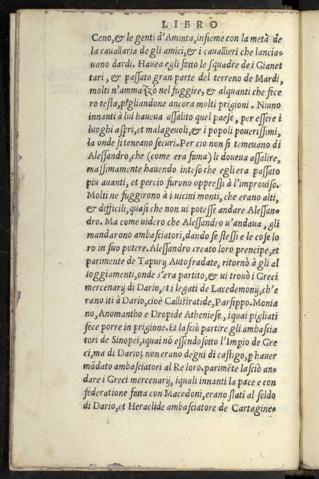 LIBRO
Ceno, & le genti d'Aminta, insieme con la metà de
la cauallaria de gli amici, & i cauallieri che lancia-
uano dardi. Hauea egli fatto le squadre de i Gianet
tari, & passato gran parte del terreno de Mardi,
molti n'ammazzò nel fuggire, & alquanti che fece
ro testa, pigliandone ancora molti prigioni. Niuno
innanti à lui haueua assalito quel paese, per essere i
luoghi aspri, et malageuoli, & i popoli pouerissimi,
la onde si teneano securi. Per cio non si temeuano di
Alessandro, che (come era fama) li doueua assalire,
massimamente hauendo inteso che egli era passato
piu auanti, et percio furono oppressi à l'improuiso.
Molti ne fuggirono à i uicini monti, che erano alti,
& difficili, quasi che non ui potesse andare Alessan-
dro. Ma come uidero che Alessandro u'andaua, gli
mandarono ambasciatori, dando se stessi e le cose lo
ro in suo potere. Alessandro creato loro prencipe, et
parimente de Tapury Autofradate, ritornò à gli al
loggiamenti, onde s'era partito, & ui trouò i Greci
mercenarij di Dario, et i legati de Lacedemonij, ch'e
rano iti à Dario, cioè Callistratide, Parsippo, Monia
no, Anomantho e Dropide Atheniese, i quai pigliati
fece porre in prigione. Et lasciò partire gli ambascia
tori de Sinopei, i quai nõ essendo sotto l'Impio de Gre
ci, ma di Dario; non erano degni di castigo, p hauer
mãdato ambasciatori al Re loro. parimẽte lasciò an-
dare i Greci mercenarij, i quali innanti la pace e con
federatione fatta con Macedoni, erano stati al soldo
di Dario, et Heraclide ambasciatore de Cartagine-